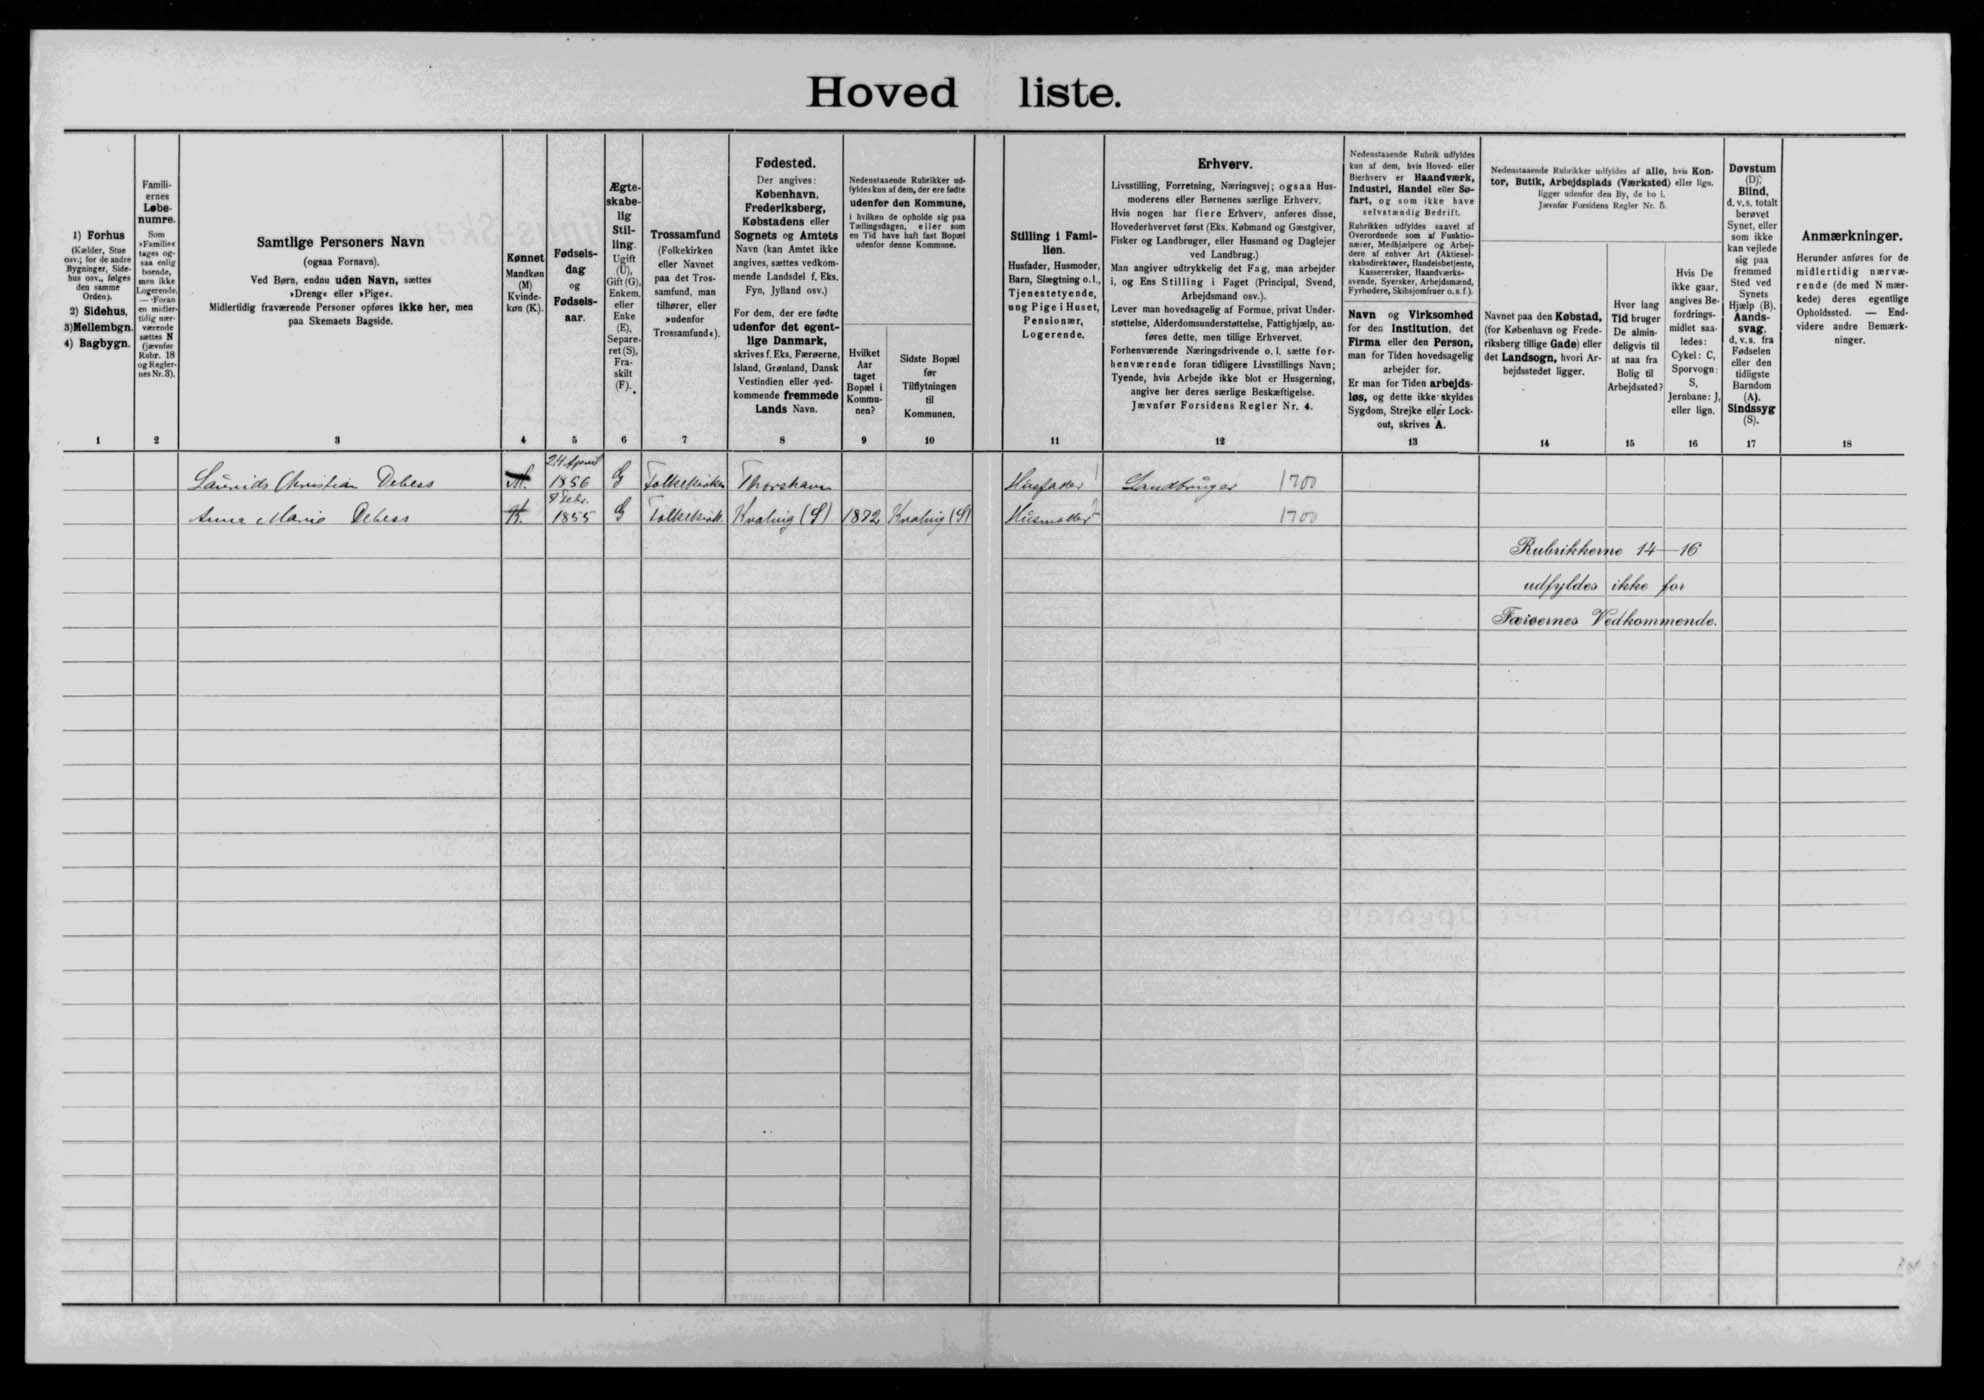 Hoved liste.
1) Forhus
(Kælder, Stue
osv.; for de andre
Bygninger, Side-
hus osv., følges
den samme
Orden).
2) Sidehus,
3) Mellembgn.
4) Bagbygn.
1
Famili-
ernes
Løbe-
numre.
Som
»Familie«
tages og-
saa enlig
boende,
men ikke
Logerende.
— Foran
en midler-
tidig nær-
værende
sættes N
(jævnfør
Rubr. 18
og Regler-
nes Nr. 3).
2
Samtlige Personers Navn
(ogsaa Fornavn).
Ved Børn, endnu uden Navn, sættes
»Dreng« eller »Pige«.
Midlertidig fraværende Personer opføres ikke her, men
paa Skemaets Bagside.
3
Kønnet
Mandkøn
(M)
Kvinde-
køn (K).
4
Fødsels-
dag
og
Fødsels-
aar.
5
Ægte-
skabe-
lig
Stil-
ling.
Ugift
(U),
Gift (G),
Enkem.
eller
Enke
(E),
Separe-
ret (S),
Fra-
skilt
(F).
6
Trossamfund
(Folkekirken
eller Navnet
paa det Tros-
samfund, man
tilhører, eller
»udenfor
Trossamfund«).
7
Fødested.
Der angives:
København,
Frederiksberg,
Købstadens eller
Sognets og Amtets
Navn (kan Amtet ikke
angives, sættes vedkom-
mende Landsdel f. Eks.
Fyn, Jylland osv.)
For dem, der ere fødte
udenfor det egent-
lige Danmark,
skrives f. Eks. Færøerne,
Island, Grønland, Dansk
Vestindien eller ved-
kommende fremmede
Lands Navn.
8
Nedenstaaende Rubrikker ud-
fyldes kun af dem, der ere fødte
udenfor den Kommune,
i hvilken de opholde sig paa
Tællingsdagen, eller som
en Tid have haft fast Bopæl
udenfor denne Kommune.
Hvilket
Aar
taget
Bopæl i
Kommu-
nen?
9
Sidste Bopæl
før
Tilflytningen
til
Kommunen.
10
Stilling i Fami-
lien.
Husfader, Husmoder,
Barn, Slægtning o. l.,
Tjenestetyende,
ung Pige i Huset,
Pensionær,
Logerende.
11
Erhverv.
Livsstilling, Forretning, Næringsvej; ogsaa Hus-
moderens eller Børnenes særlige Erhverv.
Hvis nogen har flere Erhverv, anføres disse,
Hovederhvervet først (Eks. Købmand og Gæstgiver,
Fisker og Landbruger, eller Husmand og Daglejer
ved Landbrug.)
Man angiver udtrykkelig det Fag, man arbejder
i, og Ens Stilling i Faget (Principal, Svend,
Arbejdsmand osv.).
Lever man hovedsagelig af Formue, privat Under-
støttelse, Alderdomsunderstøttelse, Fattighjælp, an-
føres dette, men tillige Erhvervet.
Forhenværende Næringsdrivende o. l. sætte for-
henværende foran tidligere Livsstillings Navn;
Tyende, hvis Arbejde ikke blot er Husgerning,
angive her deres særlige Beskæftigelse.
Jævnfør Forsidens Regler Nr. 4.
12
Nedenstaaende Rubrik udfyldes
kun af dem, hvis Hoved- eller
Bierhverv er Haandværk,
Industri, Handel eller Sø-
fart, og som ikke have
selvstændig Bedrift.
Rubrikken udfyldes saavel af
Overordnede som af Funktio-
nærer, Medhjælpere og Arbej-
dere af enhver Art (Aktiesel-
skabsdirektører, Handelsbetjente,
Kasserersker, Haandværks-
svende, Syersker, Arbejdsmænd,
Fyrbødere, Skibsjomfruer o. s. f.).
Navn og Virksomhed
for den Institution, det
Firma eller den Person,
man for Tiden hovedsagelig
arbejder for.
Er man for Tiden arbejds-
løs, og dette ikke skyldes
Sygdom, Strejke eller Lock-
out, skrives A.
13
Nedenstaaende Rubrikker udfyldes af alle, hvis Kon-
tor, Butik, Arbejdsplads (Værksted) eller lign.
ligger udenfor den By, de bo i.
Jævnfør Forsidens Regler Nr. 5.
Navnet paa den Købstad,
(for København og Frede-
riksberg tillige Gade) eller
det Landsogn, hvori Ar-
bejdsstedet ligger.
14
Hvor lang
Tid bruger
De almin-
deligvis til
at naa fra
Bolig til
Arbejdssted?
15
Hvis De
ikke gaar,
angives Be-
fordrings-
midlet saa-
ledes:
Cykel: C,
Sporvogn:
S,
Jernbane: J,
eller lign.
16
Døvstum
(D);
Blind,
d. v. s. totalt
berøvet
Synet, eller
som ikke
kan vejlede
sig paa
fremmed
Sted ved
Synets
Hjælp (B).
Aands-
svag,
d. v. s. fra
Fødselen
eller den
tidligste
Barndom
(A).
Sindssyg
(S).
17
Anmærkninger.
Herunder anføres for de
midlertidig nærvæ-
rende (de med N mær-
kede) deres egentlige
Opholdssted. — End-
videre andre Bemærk-
ninger.
18
Laurids Christian Debess M. 24 April 1856 G Folkekirken Thorshavn Husfader Landbruger 1700
Anna Marie Debess K. 9 Febr. 1855 G Folkekirk. Kvalvig (S) 1872 Kvalvig (S) Husmoder 1700
Rubrikkerne 14—16
udfyldes ikke for
Færøernes Vedkommende.